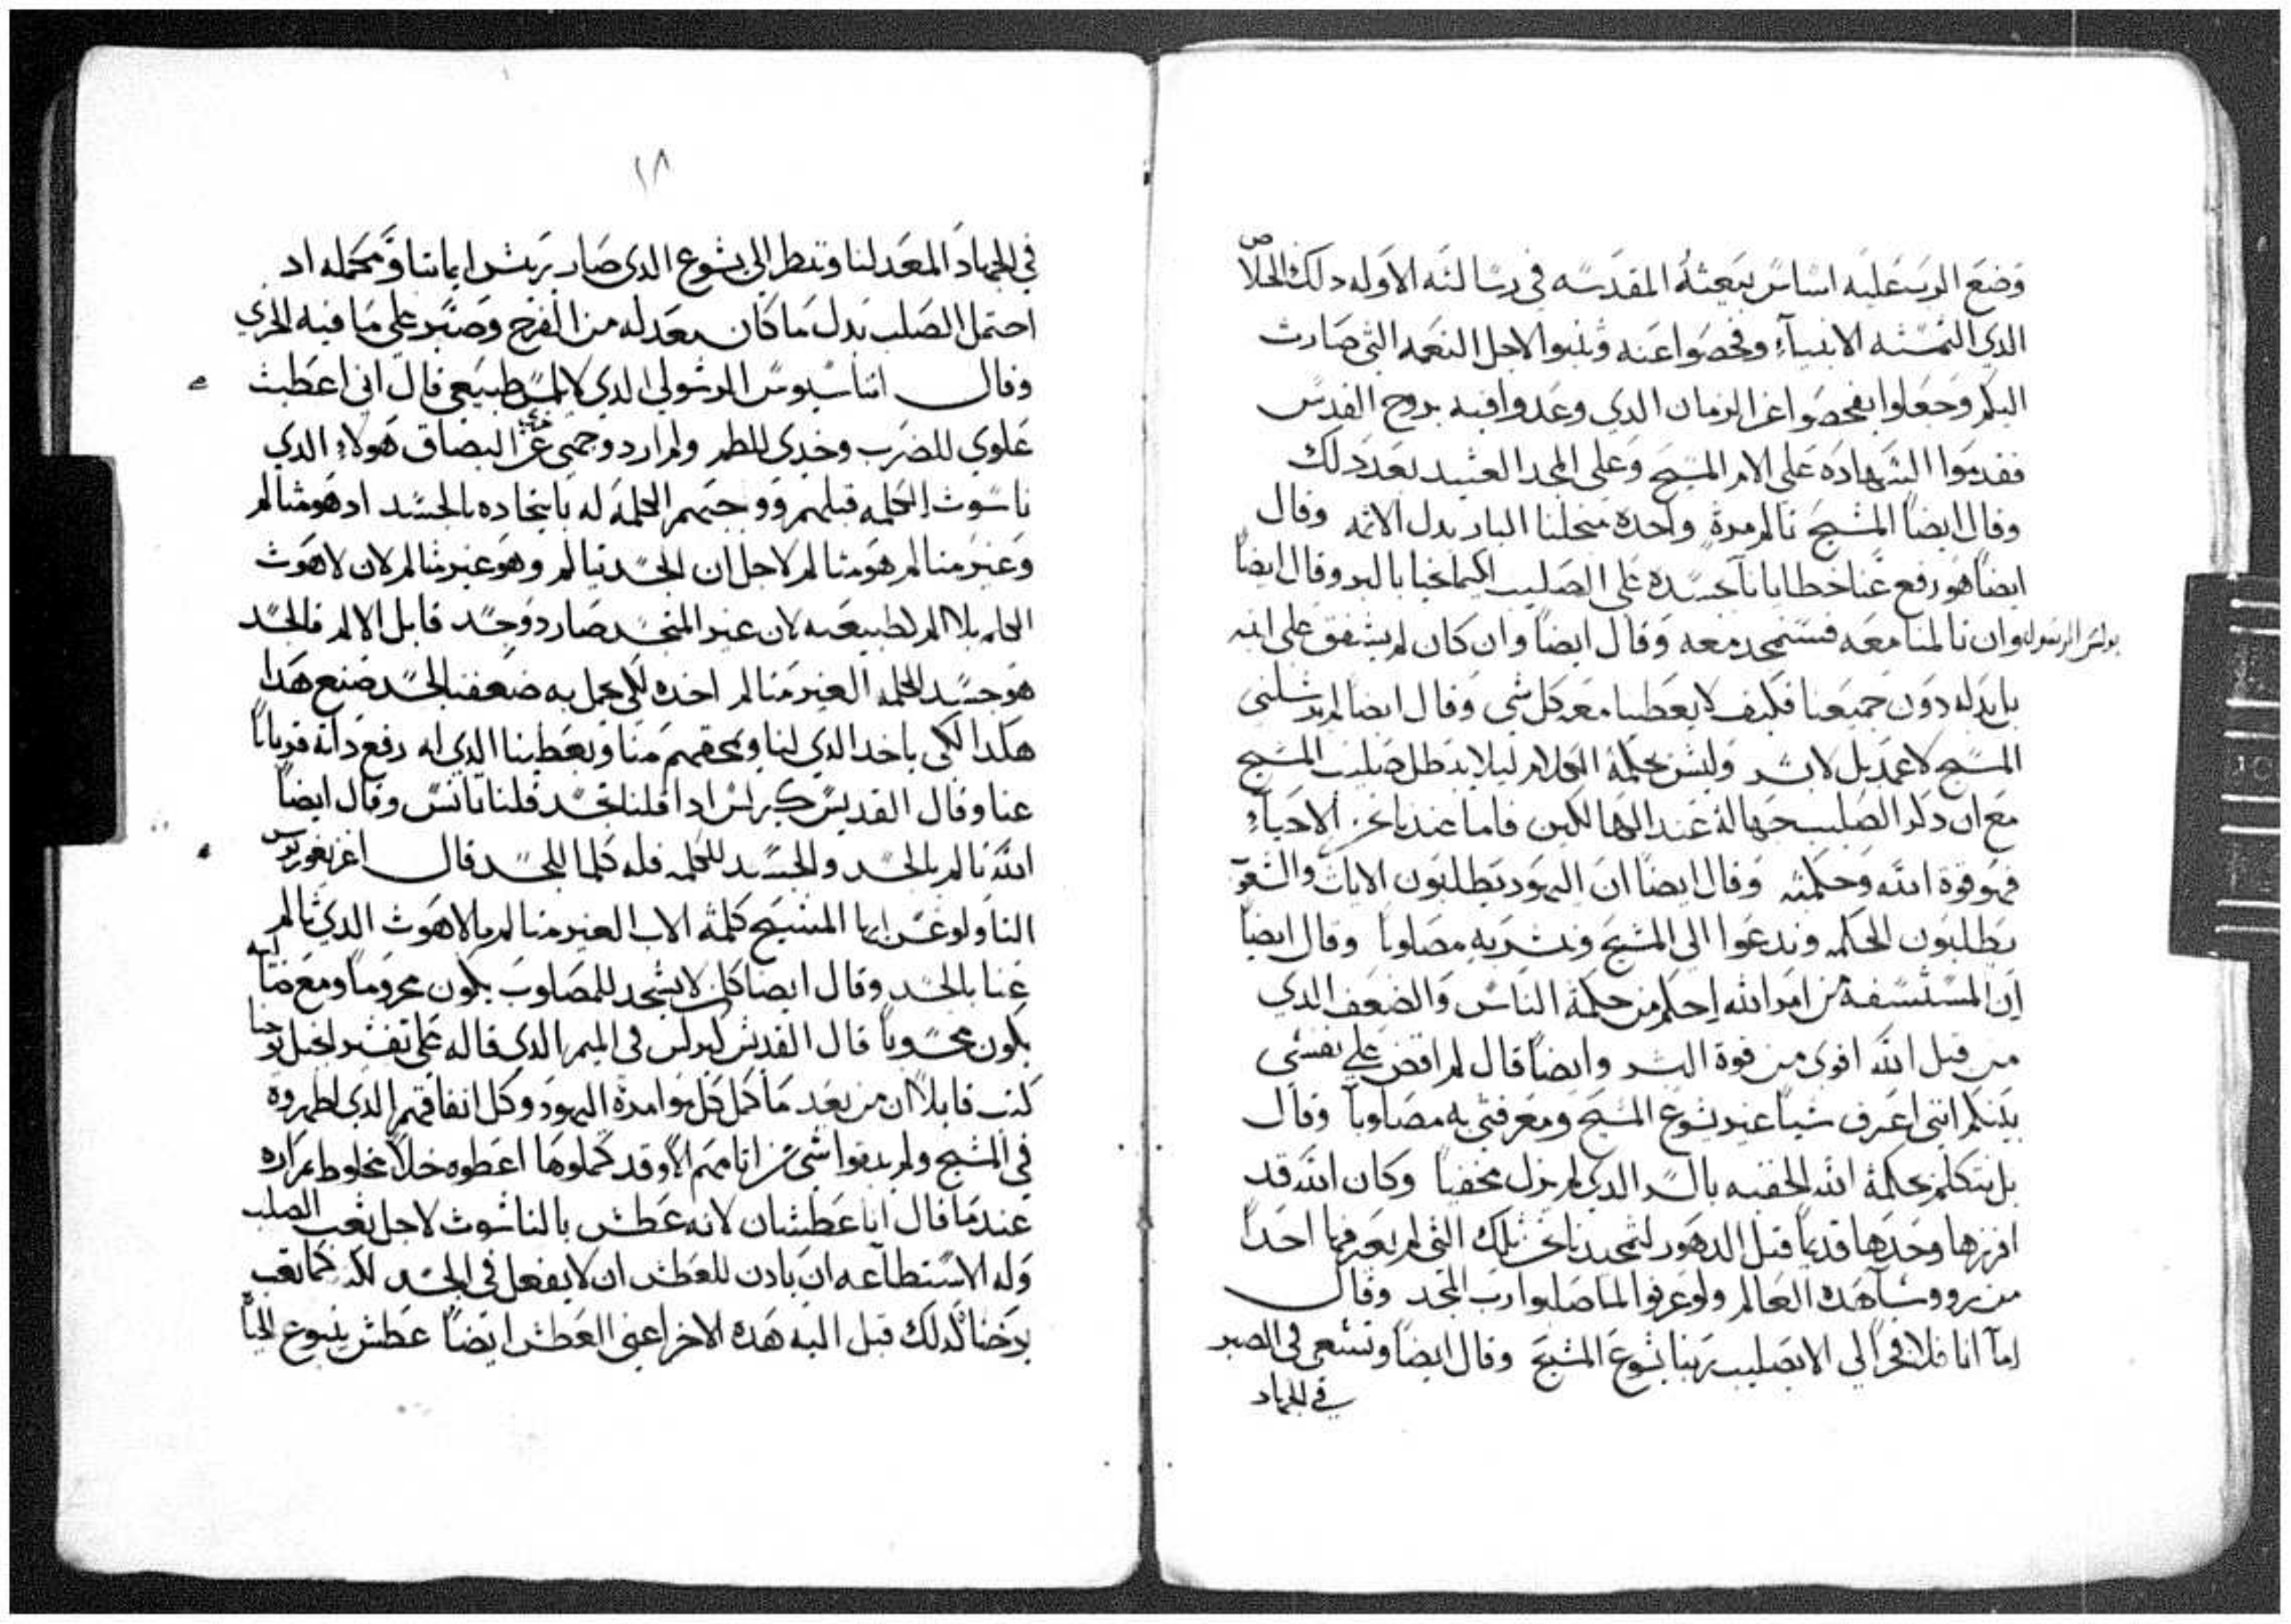 وضع الرب عليه اساس بيعته المقدسه في رسالته الاوله دلك الخلاص
الدي التمسته الانبياء وفحصوا عنه وتنبوا لاجل النعمه التي صارت
اليكم وجعلوا يفحصوا عن الزمان الدي وعدوا فيه بروح القدس
فقدموا الشهاده على الام المسيح وعلى المجد العتيد بعد دلك
وقال ايضاً المسيح تالم مرة واحده من اجلنا البار بدل الاثمه وقال
ايضاً هو رفع عنا خطايانا بجسده على الصليب لكيما نحيا بالبر وقال ايضاً
بولس الرسول وان تالمنا معه فسنتمجد معه وقال ايضاً وان كان لم يشفق على ابنه
بل بدله دون جميعنا فكيف لا يعطينا معه كل شي وقال ايضا لم يرسلني
المسيح لاعمد بل لابشر وليس بحكمة الكلام ليلا يبطل صليب المسيح
مع ان دكر الصليب جهالة عند الهالكين فاما عندنا نحن الاحياء
فهو قوة الله وحكمته وقال ايضاً ان اليهود يطلبون الايات والشعوب
يطلبون الحكمه وندعوا الى المسيح ونبشر به مصلوباً وقال ايضاً
ان المستسفه من امر الله احكم من حكمة الناس والضعف الدي
من قبل الله اقوى من قوة البشر وايضاً قال لم اقض على نفسي
بينكم انني اعرف شياً غير يسوع المسيح ومعرفتي به مصلوباً وقال
بل نتكلم بحكمة الله الخفيه بالسر الدي لم يزل مخفياً وكان الله قد
افرزها وحدها قديماً قبل الدهور لتمجيدنا نحن تلك التي لم يعرفها احداً
من روسا هده العالم ولو عرفوا لما صلبوا رب المجد وقال
اما انا فلا فخراً لي الا بصليب ربنا يسوع المسيح وقال ايضاً ونسعى في الصبر
في الجهاد
١٨
في الجهاد المعد لنا وننظر الى يسوع الدي صار ريس ايماننا ومكمله اد
احتمل الصلب بدل ما كان معد له من الفرح وصبر على ما فيه الخزي
وقال اتناسيوس الرسولي الدي قال اني اعطيت
للضرب وخدي للطم ولم ارد وجهي عن خزي البصاق هولاء الدي
ناسوت الكلمه قبلهم الكلمة له باتحاده بالجسد اد هو متالم
وغير متالم هو متالم لاجل ان الجسد تالم وهو غير متالم لان لاهوت
الكلمه بلا الم لطبيعته لان غير المتجسد صار دو جسد قابل الالم فالجسد
هو جسد الكلمه الغير متالم اخده لكي يحمل به ضعفنا الجسد صنع هدا
هكدا لكي ياخد الدي لنا منا ويعطينا الدي له رفع داته قرباناً
عنا وقال القديس كيرلس ادا قلنا تجسد قلنا تانس وقال ايضاً
الله تالم بالجسد والجسد للكلمه فله كلما للجسد قال اغريغوريوس
التاولوغس ايها المسيح كلمة الاب الغير متالم بالاهوت الدي تالم
عنا بالجسد وقال ايضاً كل من لا يسجد للمصلوب يكون محروماً ومع
يكون محسوباً قال القديس كيرلس في الميمر الدي قاله على تفسير انجيل يوحنا
كتب قايلاً ان من بعد ما كمل كل موامرة اليهود وكل انفاقهم الدي اظهروه
في المسيح ولم يبقوا شي من اتامهم الا وقد كملوها اعطوه خلاً مخلوط بمراره
عندما قال انا عطشان لانه عطش بالناسوت لاجل تعب الصلب
وله الاستطاعه ان يادن للعطش ان لا يفعل في الجسد لكنه كما تعب
برضاه كدلك قبل اليه هده الاخر اعني العطش ايضاً عطش ينبوع الحياة